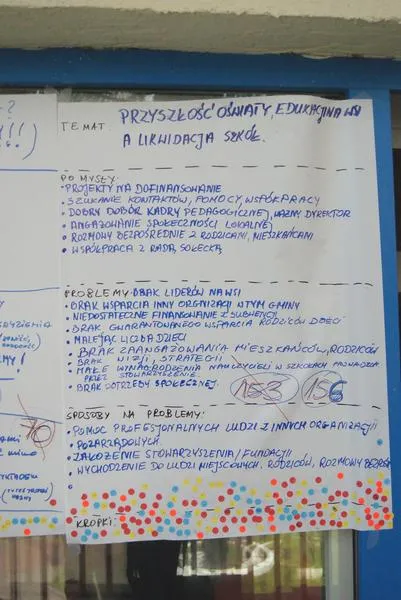 TEMAT: PRZYSZŁOŚĆ OŚWIATY, EDUKACJI NA WSI
A LIKWIDACJA SZKÓŁ.
POMYSŁY:
• PROJEKTY NA DOFINANSOWANIE
• SZUKANIE KONTAKTÓW, POMOCY, WSPÓŁPRACY
• DOBRY DOBÓR KADRY PEDAGOGICZNEJ, WAŻNY DYREKTOR
• ANGAŻOWANIE SPOŁECZNOŚCI LOKALNEJ
• ROZMOWY BEZPOŚREDNIE Z RODZICAMI, MIESZKAŃCAMI
• WSPÓŁPRACA Z RADĄ SOŁECKĄ
PROBLEMY: BRAK LIDERÓW NA WSI
• BRAK WSPARCIA INNY ORGANIZACJI W TYM GMINY
• NIEDOSTATECZNE FINANSOWANIE Z SUBWENCJI
• BRAK GWARANTOWANEGO WSPARCIA RODZICÓW DZIECI
• MALEJĄC LICZBA DZIECI
• BRAK ZAANGAŻOWANIA MIESZKAŃCÓW, RODZICÓW
• BRAK WIZJI, STRATEGII
• MAŁE WYNAGRODZENIA NAUCZYCIELI W SZKOŁACH
PRZEZ STOWARZYSZENIE.
• BRAK POTRZEBY SPOŁECZNEJ.
158 156
SPOSOBY NA PROBLEMY:
• POMOC PROFESJONALNYCH LUDZI Z INNYCH ORGANIZACJI
• POZARZĄDOWYCH.
• ZAŁOŻENIE STOWARZYSZENIA/FUNDACJI
• WYCHODZENIE DO LUDZI MIEJSCOWYCH, RODZICÓW, ROZMOWY
KROPKI:
70